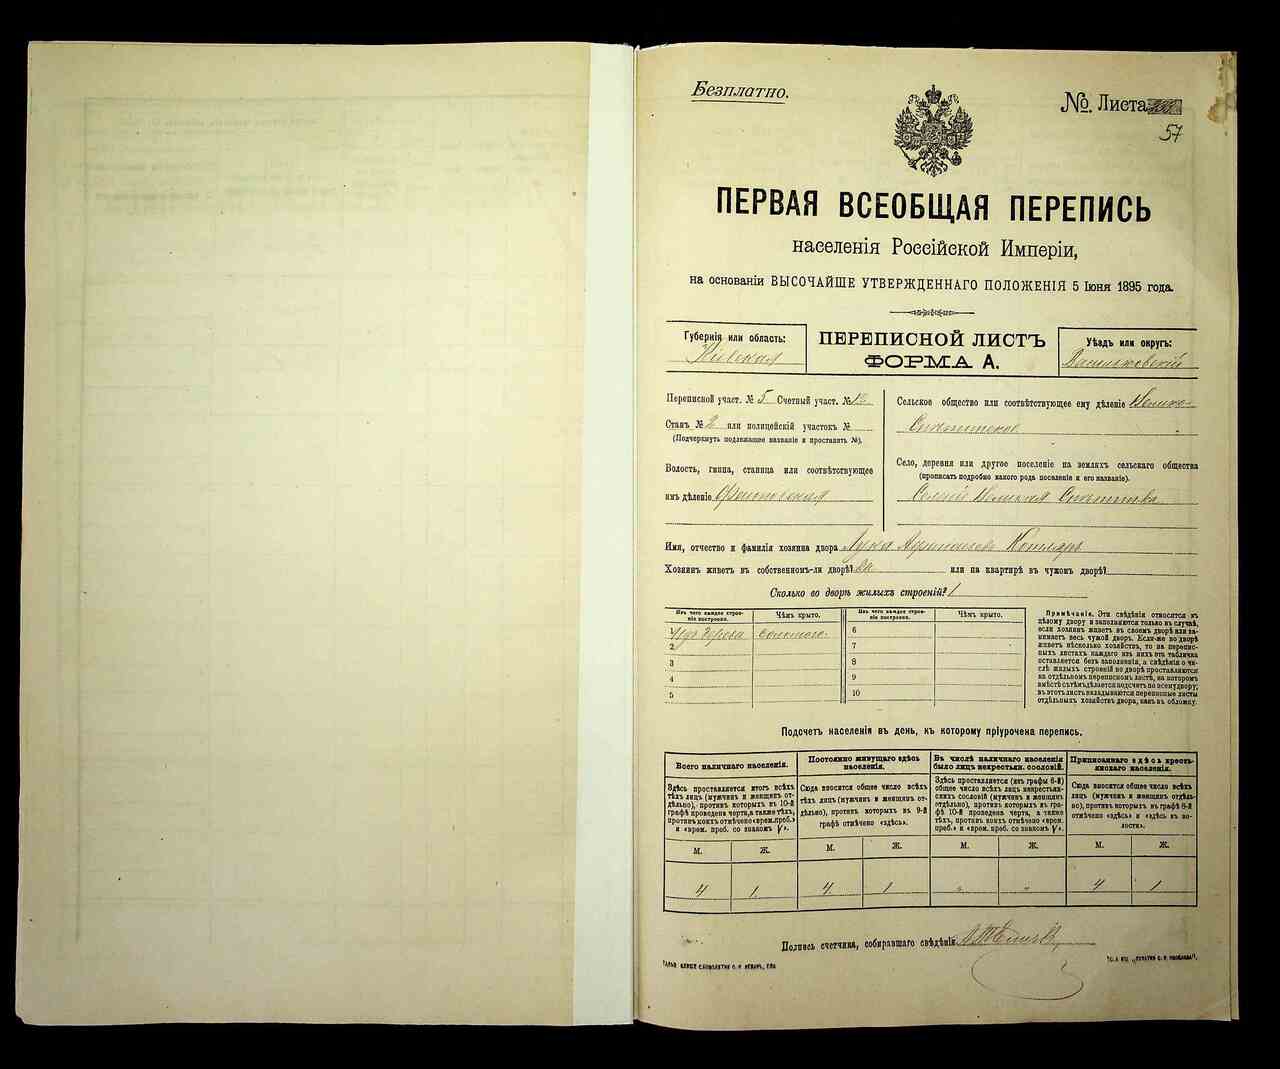 Безплатно.
№ Листа
57
ПЕРВАЯ ВСЕОБЩАЯ ПЕРЕПИСЬ
населенія Россійской Имперіи,
на основаніи ВЫСОЧАЙШЕ УТВЕРЖДЕННАГО ПОЛОЖЕНІЯ 5 Іюня 1895 года.
Губернія или область:
Кіевская
ПЕРЕПИСНОЙ ЛИСТЪ
ФОРМА А.
Уѣздъ или округъ:
Васильковскій
Переписной участ. № 5 Счетный участ. №
Станъ № 2 или полицейскій участокъ №
(Подчеркнуть подлежащее названіе и проставить №).
Волость, гмина, станица или соотвѣтствующее
имъ дѣленіе
Сельское общество или соотвѣтствующее ему дѣленіе Велико-
Село, деревня или другое поселеніе на земляхъ сельскаго общества
(прописать подробно какого рода поселеніе и его названіе).
Великая
Имя, отчество и фамилія хозяина двора Лука Котляръ
Хозяинъ живетъ въ собственномъ-ли дворѣ? да или на квартирѣ въ чужомъ дворѣ?
Сколько во дворѣ жилыхъ строеній? 1
Изъ чего каждое строеніе построено.
Чѣмъ крыто.
Изъ чего каждое строеніе построено.
Чѣмъ крыто.
1 изъ дерева соломою
2
3
4
5
6
7
8
9
10
Примѣчаніе. Эти свѣдѣнія относятся къ
цѣлому двору и заполняются только въ случаѣ,
если хозяинъ живетъ въ своемъ дворѣ или за-
нимаетъ весь чужой дворъ. Если-же во дворѣ
живетъ нѣсколько хозяйствъ, то на перепис-
ныхъ листахъ каждаго изъ нихъ эта табличка
оставляется безъ заполненія, а свѣдѣнія о чи-
слѣ жилыхъ строеній во дворѣ проставляются
на отдѣльномъ переписномъ листѣ, на которомъ
вмѣстѣ съ тѣмъ дѣлается подсчетъ по всему двору;
въ этотъ листъ вкладываются переписные листы
отдѣльныхъ хозяйствъ двора, какъ въ обложку.
Подсчетъ населенія въ день, къ которому пріурочена перепись.
Всего наличнаго населенія.
Постоянно живущаго здѣсь населенія.
Въ числѣ наличнаго населенія было лицъ некрестьян. сословій.
Приписаннаго здѣсь кресть-янскаго населенія.
Здѣсь проставляется итогъ всѣхъ
тѣхъ лицъ (мужчинъ и женщинъ от-
дѣльно), противъ которыхъ въ 10-й
графѣ проведена черта, а также тѣхъ,
противъ коихъ отмѣчено «врем. преб.»
и «врем. преб. со знакомъ V».
Сюда вносится общее число всѣхъ
тѣхъ лицъ (мужчинъ и женщинъ от-
дѣльно), противъ которыхъ въ 9-й
графѣ отмѣчено «здѣсь».
Здѣсь проставляется (изъ графы 6-й)
общее число всѣхъ лицъ некрестьян-
скихъ сословій (мужчинъ и женщинъ
отдѣльно), противъ которыхъ въ гра-
фѣ 10-й проведена черта, а также
тѣхъ, противъ коихъ отмѣчено «врем.
преб.» и «врем. преб. со знакомъ V».
Сюда вносится общее число всѣхъ
лицъ (мужчинъ и женщинъ отдѣль-
но), противъ которыхъ въ графѣ 8-й
отмѣчено «здѣсь» и «здѣсь въ во-
лости».
М. Ж. М. Ж. М. Ж. М. Ж.
4 1 4 1 „ „ 4 1
Подпись счетчика, собиравшаго свѣдѣнія